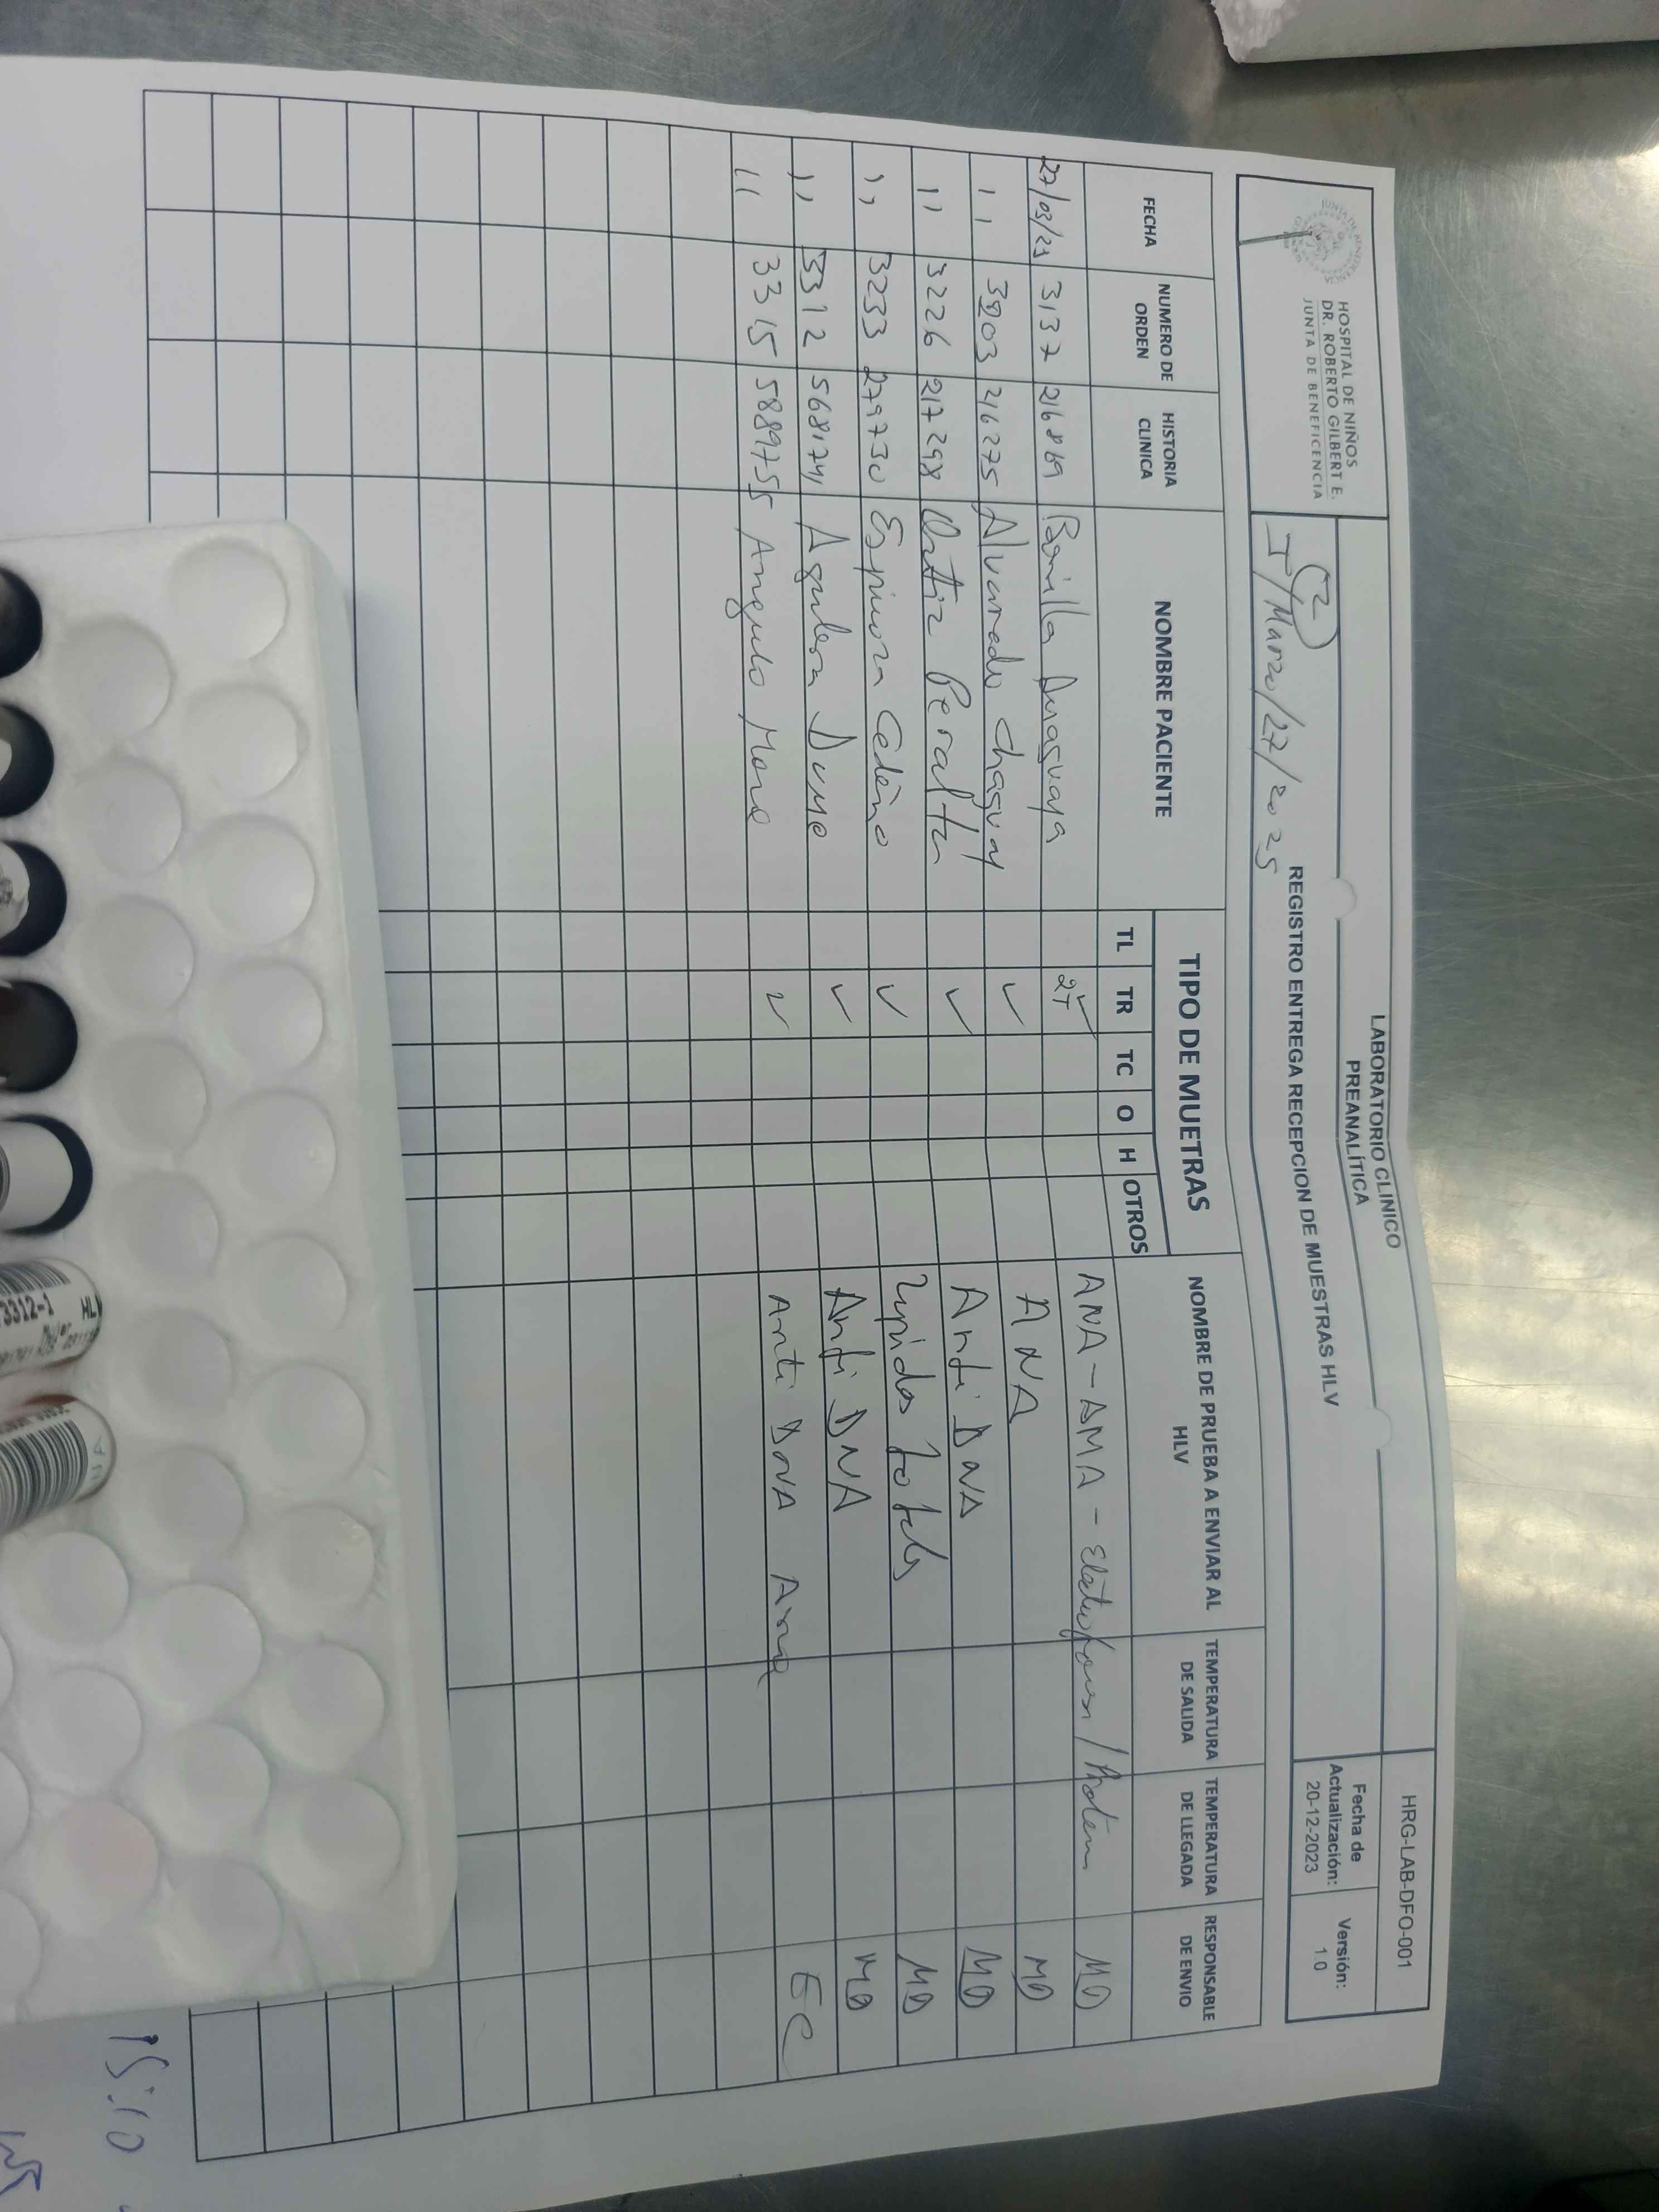 HOSPITAL DE NIÑOS
DR. ROBERTO GILBERT E.
JUNTA DE BENEFICENCIA
LABORATORIO CLINICO
PREANALÍTICA
HRG-LAB-DFO-001
T/Marzo/27/2025
REGISTRO ENTREGA RECEPCION DE MUESTRAS HLV
Fecha de Actualización: 20-12-2023
Versión: 1.0
FECHA NUMERO DE ORDEN HISTORIA CLINICA NOMBRE PACIENTE TIPO DE MUETRAS NOMBRE DE PRUEBA A ENVIAR AL HLV TEMPERATURA DE SALIDA TEMPERATURA DE LLEGADA RESPONSABLE DE ENVIO
TL TR TC O H OTROS
27/03/25 3137 216869 Bonilla 2T ✓ ANA - AMA - MO
11 3203 216275 Alvarado Chaguay ✓ ANA MO
11 3226 217298 Ortiz Peralta ✓ Anti DNA MO
11 3233 279730 Espinoza Cedeño ✓ Lipidos totales MO
11 3312 Aguilera Dume ✓ Anti DNA MO
11 3315 5889755 Angulo More ✓ Anti DNA Ama EC
3312-1 HL
15:10